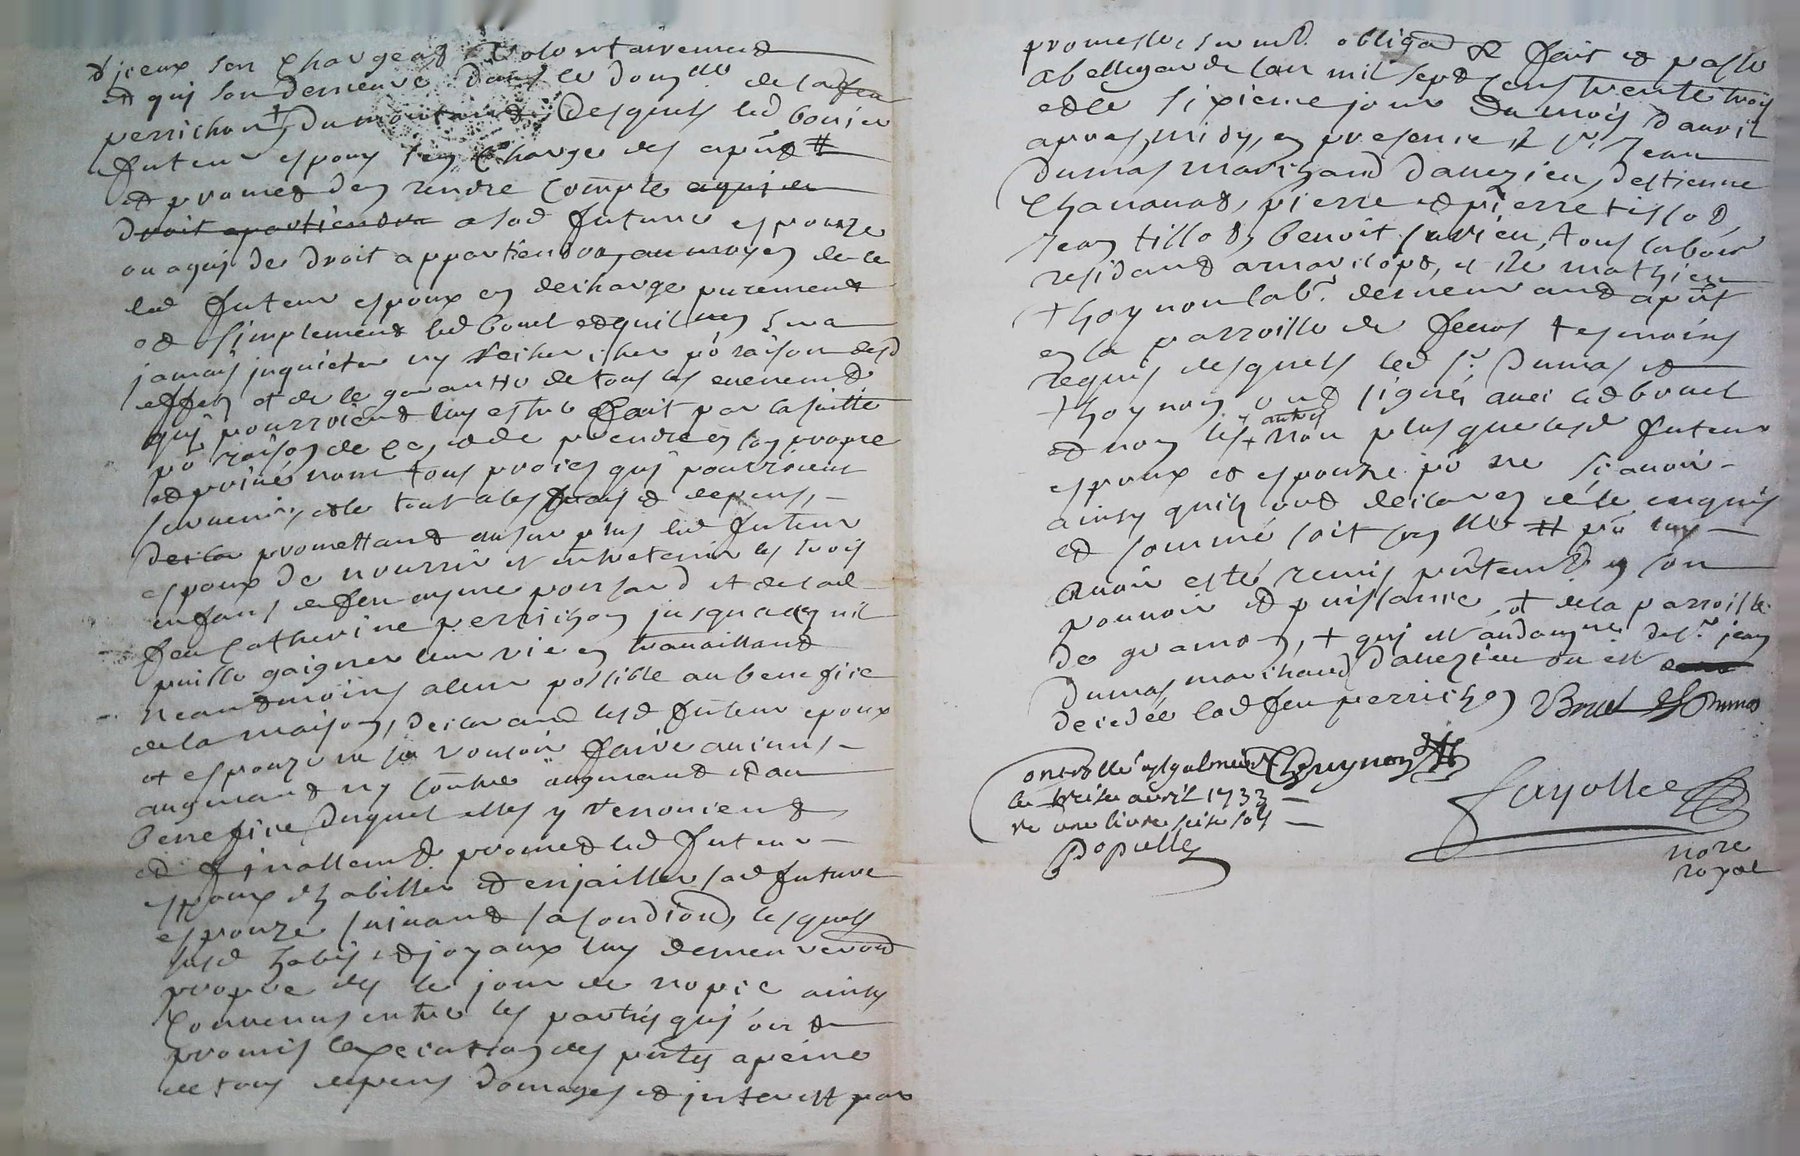 d'iceux s'en chargeat volontairement
et qui son demeuré dans le domlle de lad feu
perrichon + du montant desquels led bouier
futeur espoux s'en charge des aput #
et promet den rendre compte aqui de
droit apartiendra a lad future espouze
ou aquy de droit appartiendra, au moyen de ce
led futeur espoux en decharge purement
et simplement led bouet et quil nen sera
jamais inquieter ny recherscher po raison desd
effets et de le garantir de tous les evenement
quy pourroient luy estre fait par la suitte
po raison de ce, et de prendre en son propre
et privé nom tous proces quy pourroient
survenir, et le tout a ses frais et depens, –
promettant au surplus led futeur
espoux de nourrir et entretenir les trois
enfans de feu ayme poursand et de lad
feu Catherine perrichon jusqua ce quil
puisse gaigner leur vie en travaillant
neantmoins a leur possible au benefice
de la maison, declarant lesd futeur epoux
et espouze ne se vouloir faire aucuns –
augmant ny contre augmant et au
benefice duquel elles y renoncent
et finallement promet led futeur –
espoux dhabiller et enjailler lad future
espouze suivant sa condition, lesquels
susd habis et joyaux luy demeureront
propre des le jour de nopce ainsy
Convenus entre les parties quy ont
promis lexecution des pntes a peine
de tous depens domages et interest par
promesse, serment obligaon &c fait et passé
a bellegarde lan mil sept cens trente trois
et le sixieme jour du mois d'avril
apres midy, en presence de sr Jean
Dumas marchand dauezieu, destienne
Chananat, pierre et pierre tissot,
Jean tissot, benoit, tous labour
residant a mariclops, et de mathieu
thoynon labr demeurant aput
en la parroisse de feurs tesmoins
requis desquels led sr Dumas et
thoynon ont signé, avec led bouet
et non les autres non plus que lesd futeur
espoux et espouze po ne scavoir –
ainsy quils ont declare en ete enquis
et sommé soit # po luy –
avoir esté remis putement en son
pouvoir et puissance, et de la parroisse
de gramon, + quy est dud sr jean
Dumas marchand dauezieu ou est
decedée lad feu perrichon Bouet Dumas
Controllé a st galmier Thoynon
le treise avril 1733 –
re une livre seise sols –
Populle
fayolle
nore
royal